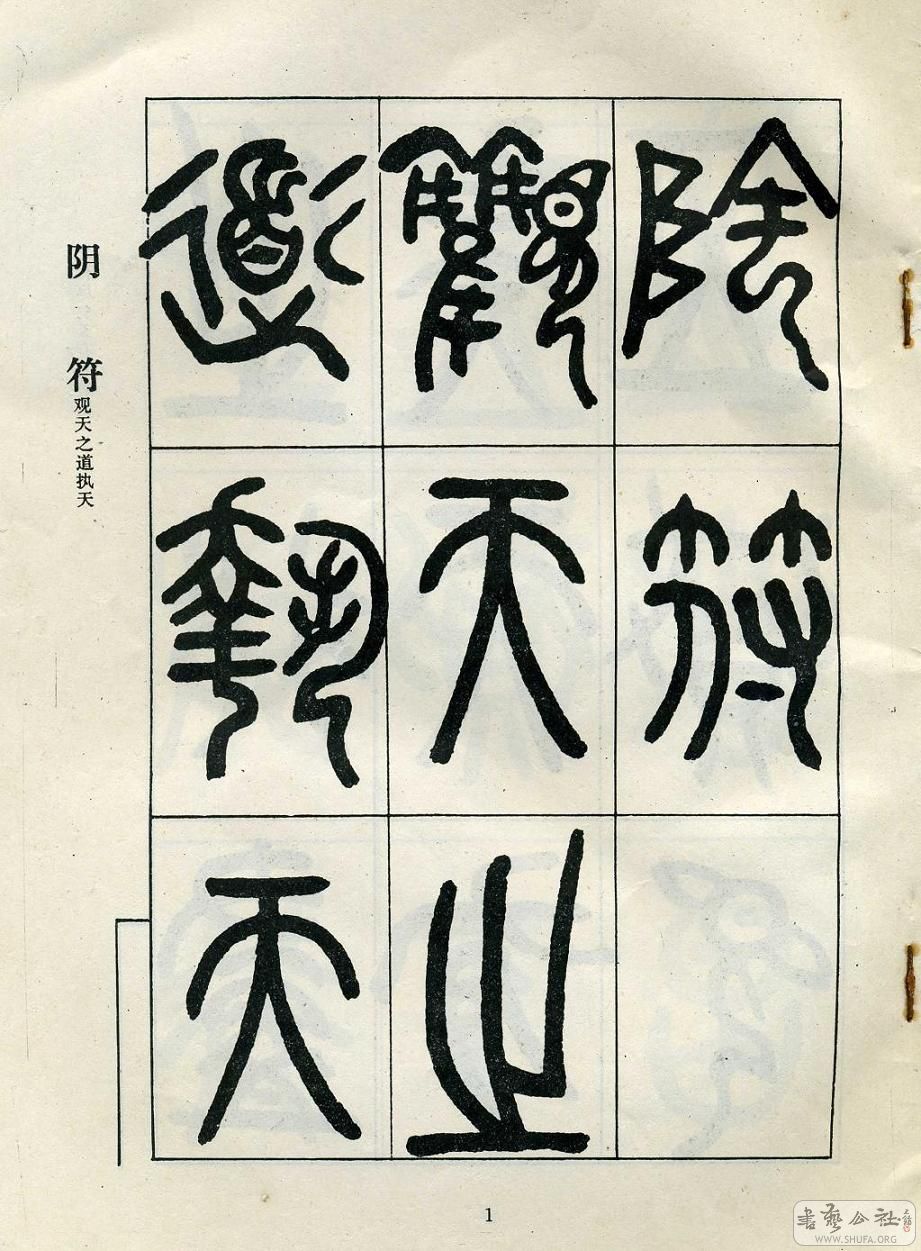 陰符
觀天之
道執天
阴 符
观天之道执天
1
書藝公社
WWW.SHUFA.ORG